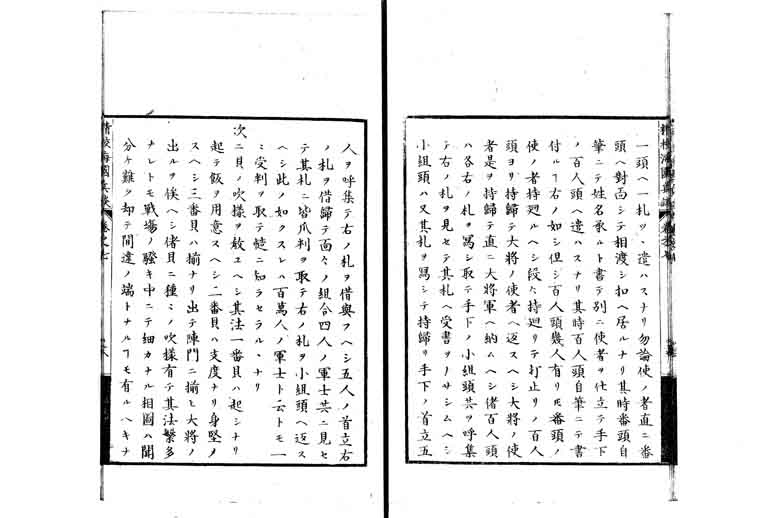 一頭ヘ一札ツヽ遣ハスナリ勿論使ノ者直ニ番
頭ヘ對面シテ相渡シ扣ヘ居ルナリ其時番頭自
筆ニテ姓名承ルト書テ別ニ使者ヲ仕立テ手下
ノ百人頭ヘ遣ハスナリ其時百人頭自筆ニテ書
付ルヿ右ノ如シ百人頭幾人有リ𪜈番頭ノ
使ノ者持廻ルヘシ段々持廻リテ打止リノ百人
頭ヨリ持歸テ大將ノ使者ヘ返スヘシ大將ノ使
者是ヲ持歸テ直ニ大將軍ヘ納ムヘシ偖百人頭
ハ各右ノ札ヲ寫シ取テ手下ノ小組頭共ヲ呼集
テ右ノ札ヲ見セテ其札ヘ受書ヲナサシムヘシ
小組頭ハ又其札ヲ寫シテ持歸リ手下ノ首立五
人ヲ呼集テ右ノ札ヲ借與フヘシ五人ノ首立右
ノ札ヲ借歸テ面々ノ組合四人ノ軍士共ニ見セ
テ其札ニ皆爪判ヲ取テ右ノ札ヲ小組頭ヘ返ス
ヘシ此ノ如クスレハ百萬人ノ軍士ト云トモ一
ミ受判ヲ取テ慥ニ知ラセラルヽナリ
次ニ貝ノ吹樣ヲ敎ユヘシ其法一番貝ハ起シナリ
起テ飯ヲ用意スヘシ二番貝ハ支度ナリ身堅ノ
スヘシ三番貝ハ揃ナリ出テ陣門ニ揃ヒ大將ノ
出ルヲ候ヘシ偖貝ニ種ミノ吹樣有テ其法繁多
ナレトモ戰場ノ騷キ中ニテ細カナル相圖ハ聞
分ケ難ク却テ間違ノ端トナルヿモ有ルヘキナ
精校海國兵談 卷之七